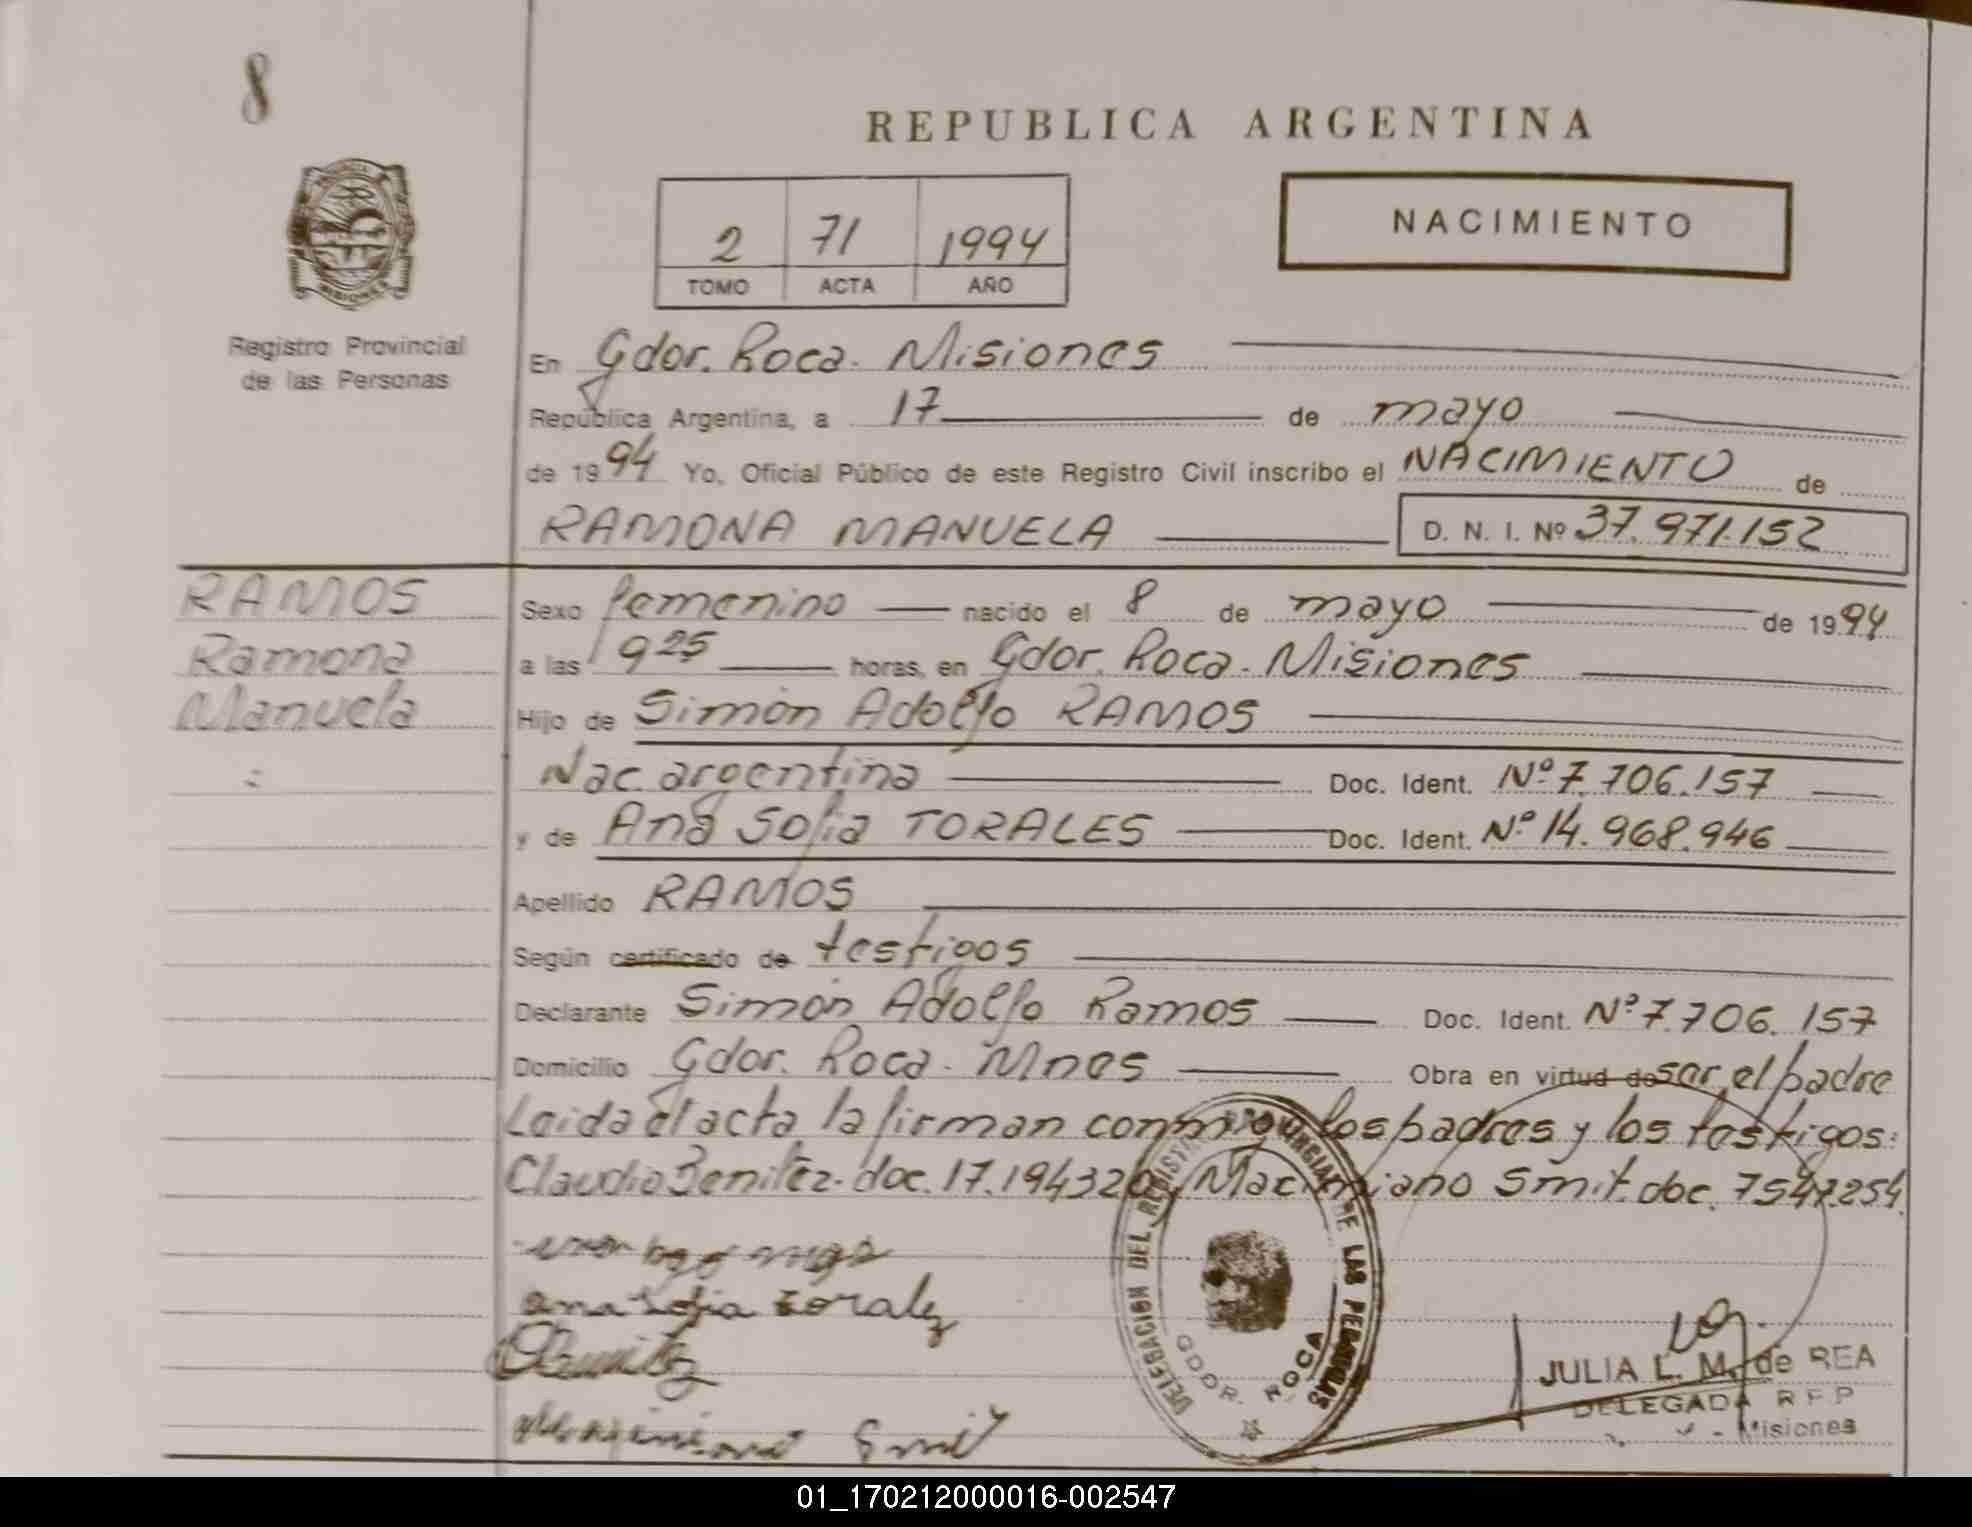 8
REPUBLICA ARGENTINA
NACIMIENTO
2 71 1994
TOMO ACTA AÑO
PROVINCIA
MISIONES
Registro Provincial
de las Personas
En Gdor. Roca. Misiones
República Argentina, a 17 de mayo
de 1994 Yo, Oficial Público de este Registro Civil inscribo el NACIMIENTO de
RAMONA MANUELA D. N. I. Nº 37.971.152
RAMOS
Ramona
Manuela
Sexo femenino nacido el 8 de mayo de 1994
a las 9 25 horas, en Gdor. Roca. Misiones
Hijo de Simón Adolfo RAMOS
Nac. argentina Doc. Ident. Nº 7.706.157
y de Ana Sofia TORALES Doc. Ident. Nº 14.968.946
Apellido RAMOS
Según certificado de testigos
Declarante Simón Adolfo Ramos Doc. Ident. Nº 7.706.157
Domicilio Gdor. Roca. Mnes Obra en virtud de ser el padre
Leida el acta la firman conmigo los padres y los testigos:
Claudio Benítez. doc. 17.194320 y Maximiano Smit. doc. 7547.254
ana sofia torales
Smit
DELEGACION DEL REGISTRO PROVINCIAL DE LAS PERSONAS
GDOR. ROCA
JULIA L. M. de REA
DELEGADA R P P
Misiones
01_170212000016-002547